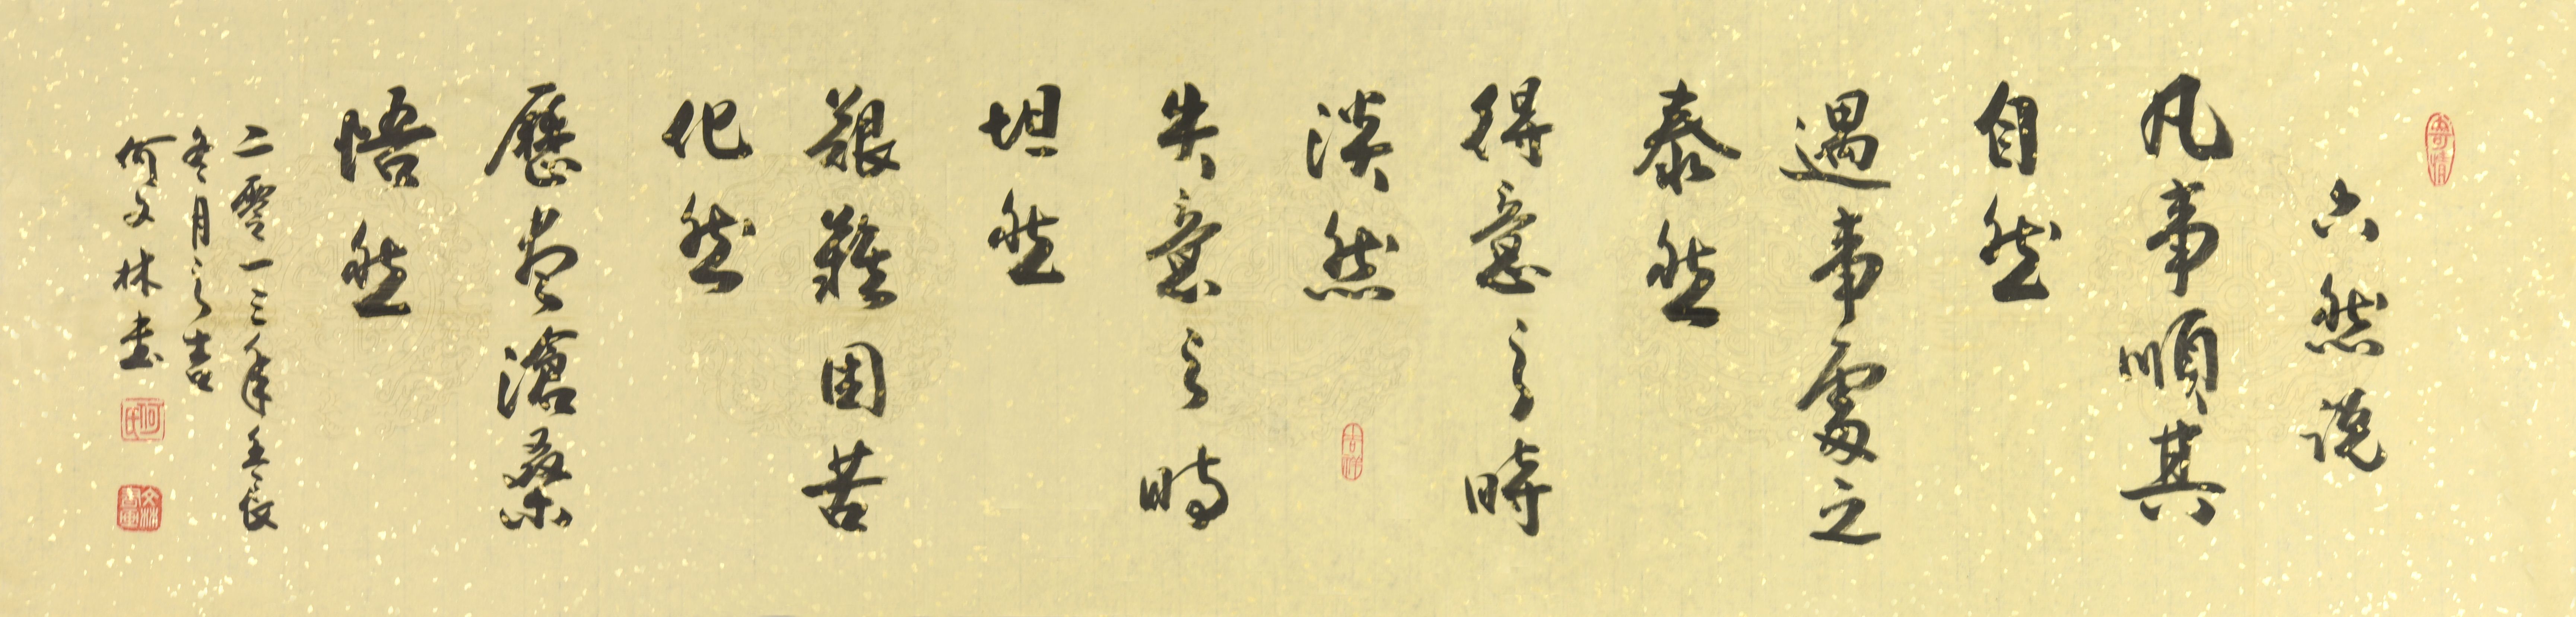 寄情
六然説
凡事順其
自然
遇事處之
泰然
得意之時
淡然
吉祥
失意之時
坦然
艱難困苦
必然
歷盡滄桑
悟然
二零一三年壬辰
冬月之吉
何文林書
何氏
文林書畫